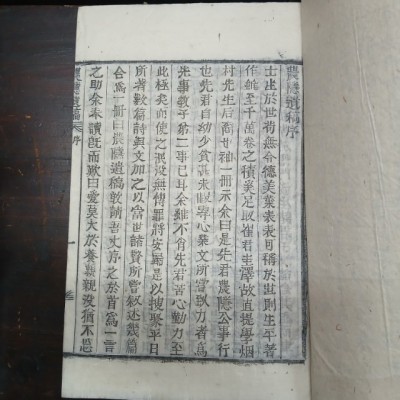 農隱遺稿序
士生於世苟無令德美業表表可稱於世則生平著
作雖至千萬卷之積奚足取崔君生澤故直提學烟
村先生后裔甘袖一冊示余曰是先君農隱公事行
也先君自幼少貧甚未暇專心業文所嘗致力者爲
先事敎子弟二事已耳余雖不肖先君苦心勤力至
此極而使之泯沒無傳罪將安歸是以搜聚平日
所著歉稿詩與文加之以當世諸賢所嘗叙述裁編
合爲一冊曰農隱遺稿敢請吾丈序之於首爲一言
之助余未讀旣而歎曰愛莫大於養親親沒猶不忘
農隱遺稿 序